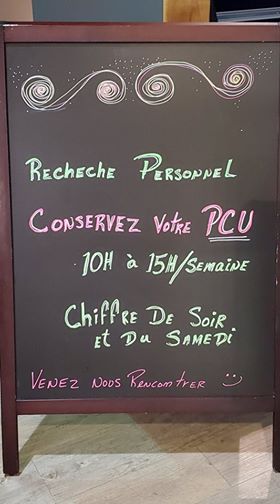 Recheche Personnel
Conservez Votre PCU
10H à 15H/Semaine
Chiffre De Soir
et Du Samedi
Venez Nous Rencontrer :)